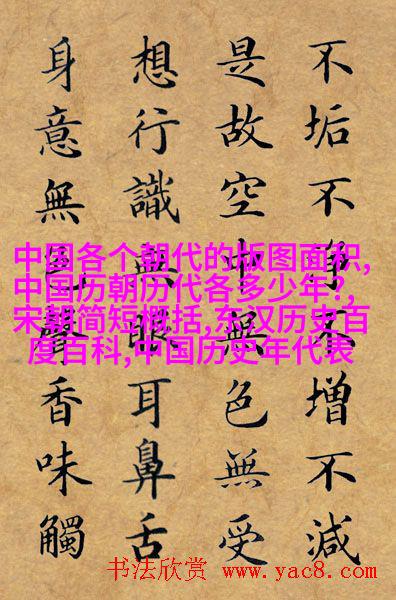 不垢不净不增不減
是故空中無色無受
想行識無眼耳鼻舌
身意無色聲香味觸
中国各个朝代的版图面积,
中国历朝历代各多少年?,
宋朝简短概括,东汉历史百
度百科,中国历史年代表
书法欣赏 www.yac8.com